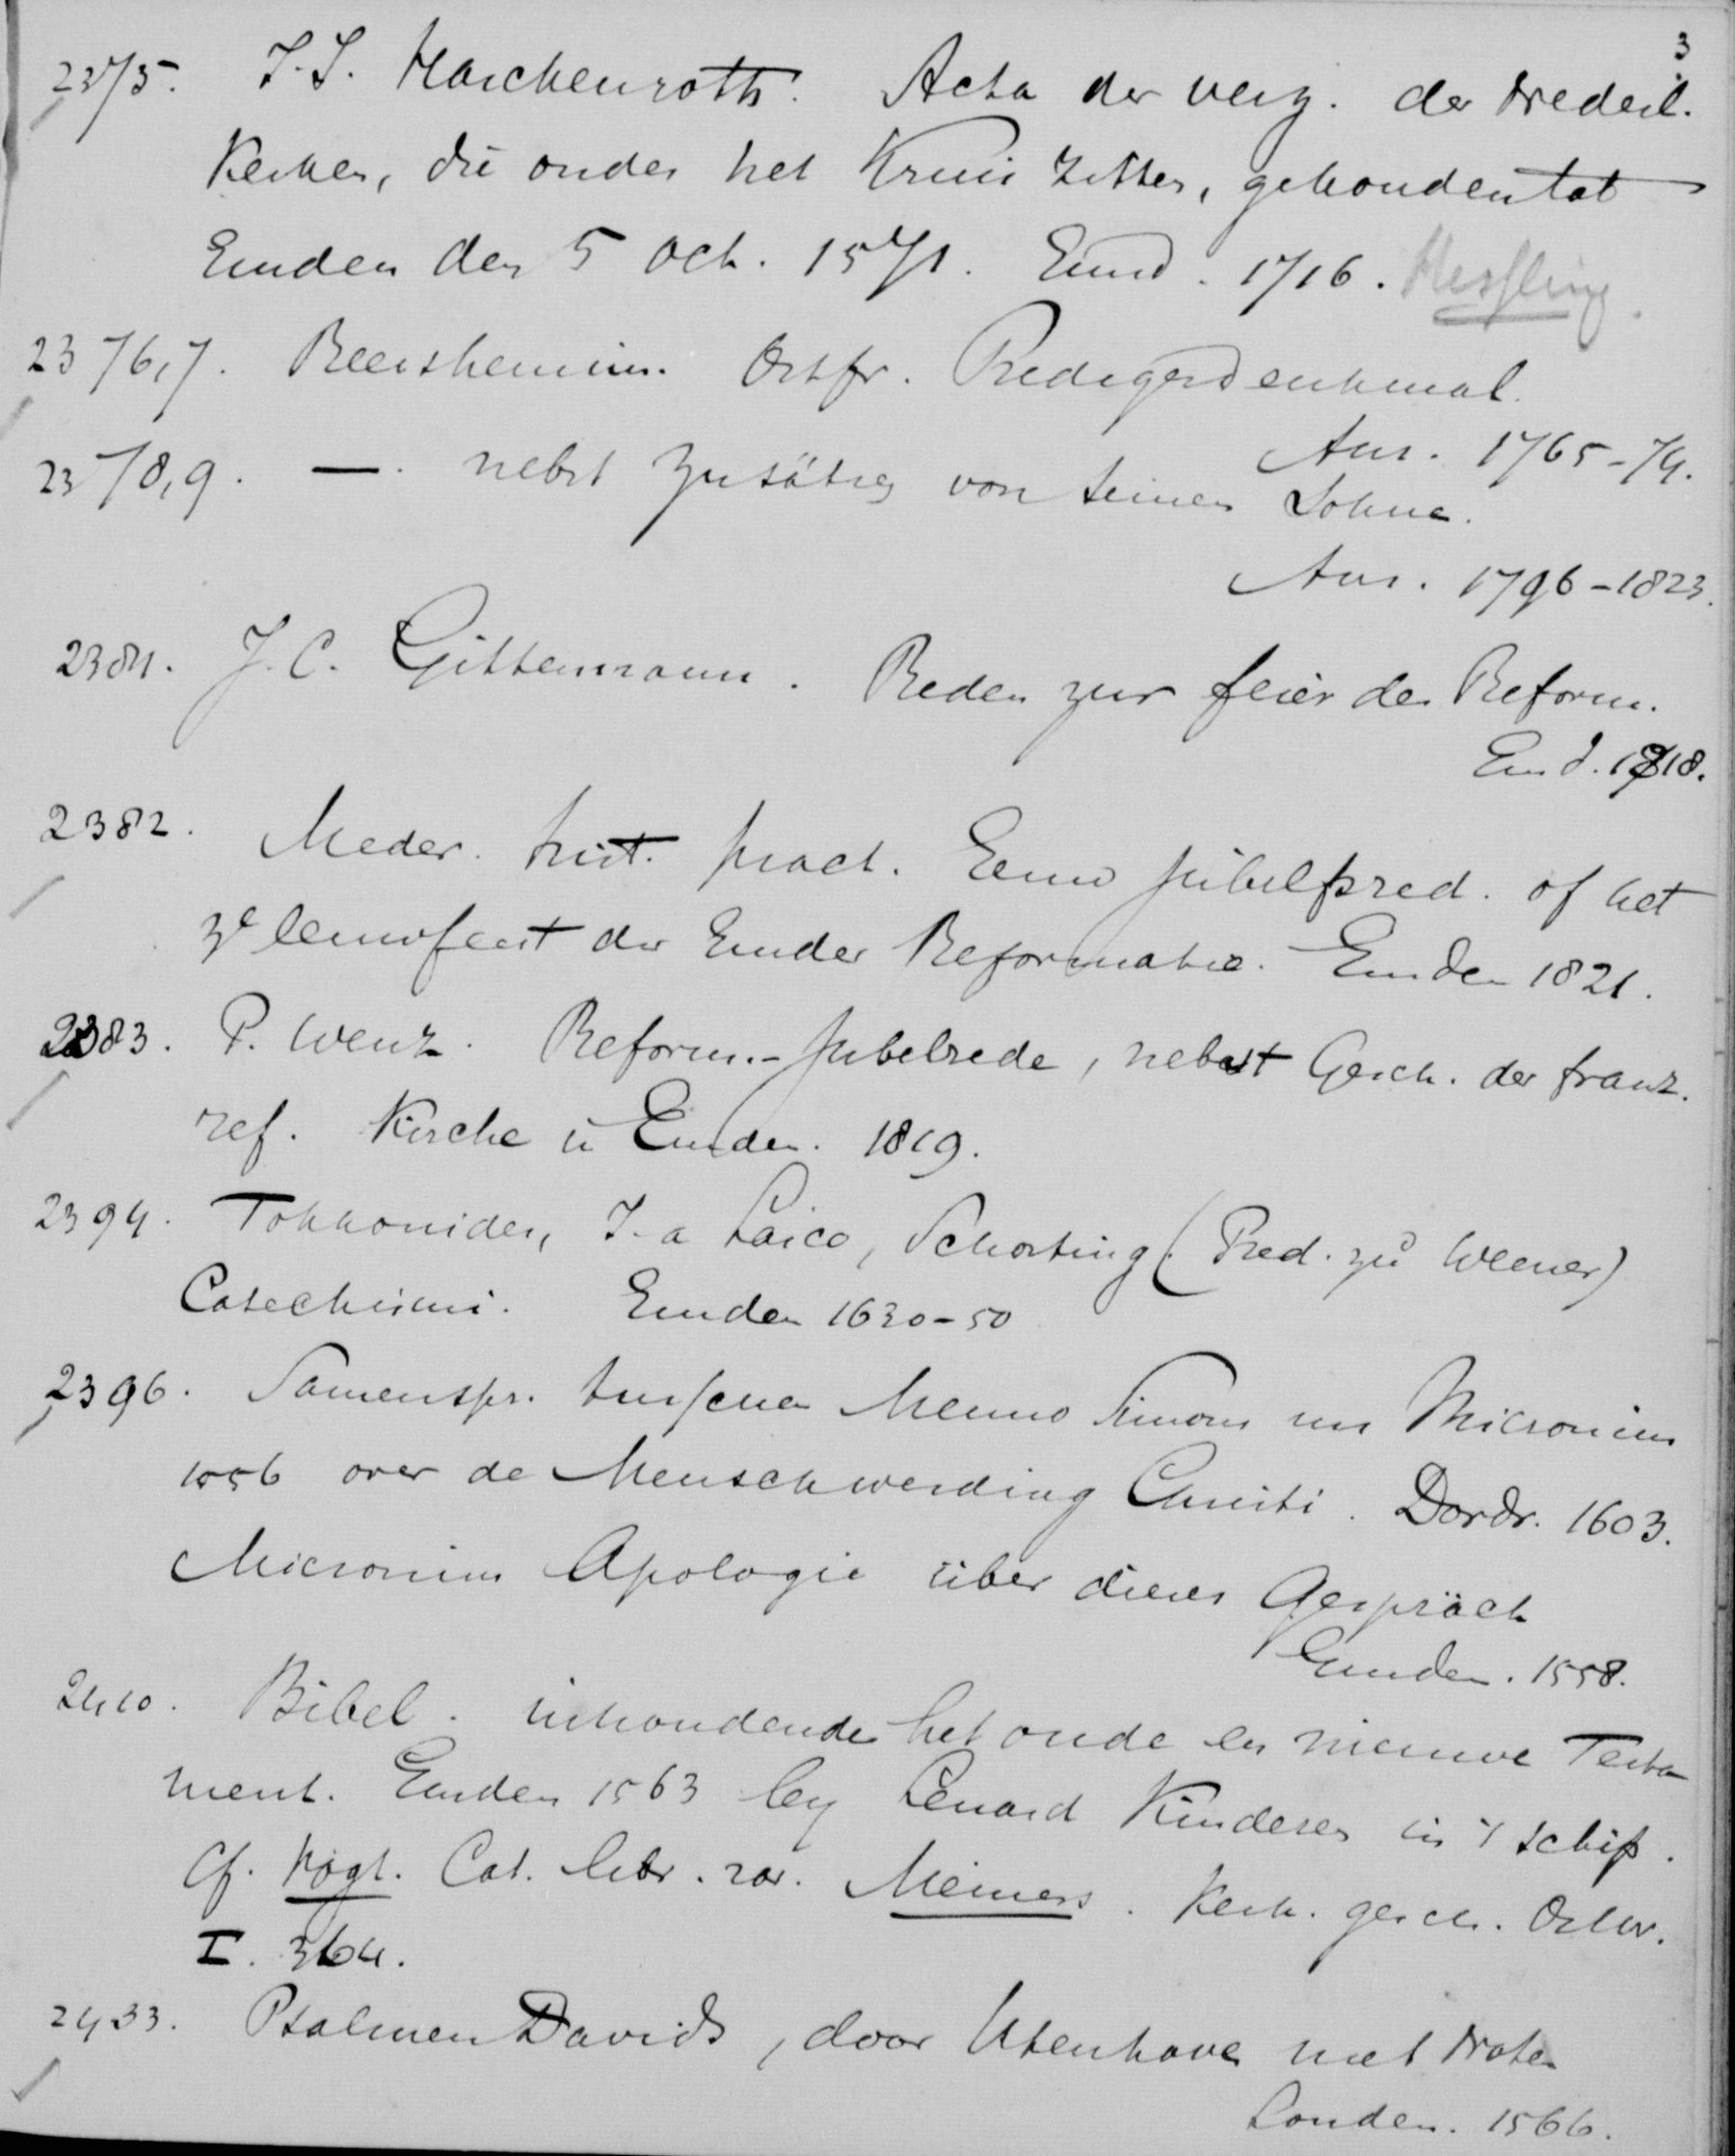 3
2375. J. J. Harkenroth. Acta der verz. der Nederl.
Kerken, die onder het Kruis zitten, gehouden tot
Emden den 5 Oct. 1571. Emd. 1716.
2376,7. Reershemius. Ostfr. Predigerdenkmal.
Aur. 1765-74.
2378,9. —. nebst Zusätzen von seinem Sohne.
Aur. 1796-1823.
2381. J. C. Gittermann. Reden zur feier der Reform.
Emd. 1818.
2382. Meder. hist. pract. Eeuw jubelpred. of het
3e eeuwfeest der Emder Reformatie. Emden 1821.
2383. P. Wenz. Reform.-Jubelrede, nebst Gesch. der franz.
ref. Kirche in Emden. 1819.
2394. J. a Lasco, Schorting (Pred. zu Weener)
Catechismi. Emden 1630-50
2396. Samenspr. tusschen Menno Simons un Micronius
1556 over de Menschwerding Christi. Dordr. 1603.
Micronius Apologie über dieses Gespräch
Emden. 1558.
2410. Bibel. inhoudende het oude en nieuwe Testa
ment. Emden 1563 by Lenard Kinderen in 't schip.
Cf. Vogt. Cat. libr. rar. Meiners. Kerk. gesch. Ostvr.
I. 364.
2433. Psalmen Davids, door Utenhove met Noten
Londen. 1566.